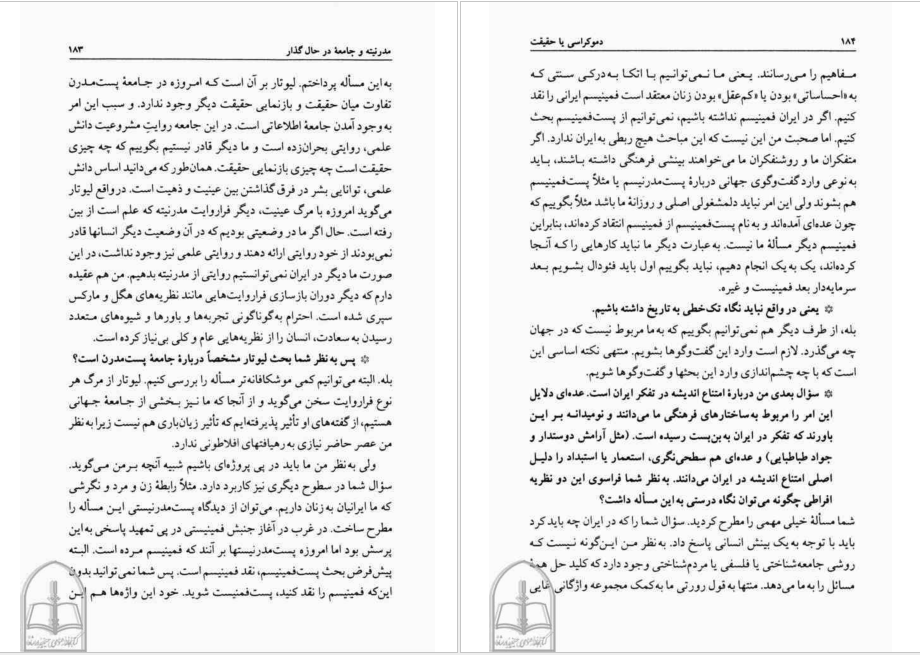 مدرنیته و جامعهٔ در حال گذار ۱۸۳
به این مسأله پرداختم. لیوتار بر آن است که امروزه در جامعهٔ پست‌مدرن
تفاوت میان حقیقت و بازنمایی حقیقت دیگر وجود ندارد. و سبب این امر
به وجود آمدن جامعهٔ اطلاعاتی است. در این جامعه روایتِ مشروعیت دانش
علمی، روایتی بحران‌زده است و ما دیگر قادر نیستیم بگوییم که چه چیزی
حقیقت است چه چیزی بازنمایی حقیقت. همان‌طور که می‌دانید اساس دانش
علمی، توانایی بشر در فرق گذاشتن بین عینیت و ذهیت است. در واقع لیوتار
می‌گوید امروزه با مرگ عینیت، دیگر فراروایت مدرنیته که علم است از بین
رفته است. حال اگر ما در وضعیتی بودیم که در آن وضعیت دیگر انسانها قادر
نمی‌بودند از خود روایتی ارائه دهند و روایتی علمی نیز وجود نداشت، در این
صورت ما دیگر در ایران نمی‌توانستیم روایتی از مدرنیته بدهیم. من هم عقیده
دارم که دیگر دوران بازسازی فراروایت‌هایی مانند نظریه‌های هگل و مارکس
سپری شده است. احترام به گوناگونی تجربه‌ها و باورها و شیوه‌های متعدد
رسیدن به سعادت، انسان را از نظریه‌هایی عام و کلی بی‌نیاز کرده است.
❊ پس به نظر شما بحث لیوتار مشخصاً دربارهٔ جامعهٔ پست‌مدرن است؟
بله. البته می‌توانیم کمی موشکافانه‌تر مسأله را بررسی کنیم. لیوتار از مرگ هر
نوع فراروایت سخن می‌گوید و از آنجا که ما نیز بخشی از جامعهٔ جهانی
هستیم، از گفته‌های او تأثیر پذیرفته‌ایم که تأثیر زیان‌باری هم نیست زیرا به نظر
من عصر حاضر نیازی به رهیافتهای افلاطونی ندارد.
ولی به نظر من ما باید در پی پروژه‌ای باشیم شبیه آنچه برمن می‌گوید.
سؤال شما در سطوح دیگری نیز کاربرد دارد. مثلاً رابطهٔ زن و مرد و نگرشی
که ما ایرانیان به زنان داریم. می‌توان از دیدگاه پست‌مدرنیستی این مسأله را
مطرح ساخت. در غرب در آغاز جنبش فمینیستی در پی تمهید پاسخی به این
پرسش بود اما امروزه پست‌مدرنیستها بر آنند که فمینیسم مرده است. البته
پیش‌فرض بحث پست‌فمینیسم، نقد فمینیسم است. پس شما نمی‌توانید بدون
این‌که فمینیسم را نقد کنید، پست‌فمنیست شوید. خود این واژه‌ها هم این
۱۸۴ دموکراسی یا حقیقت
مفاهیم را می‌رسانند. یعنی ما نمی‌توانیم با اتکا به درکی سنتی که
به «احساساتی» بودن یا «کم‌عقل» بودن زنان معتقد است فمینیسم ایرانی را نقد
کنیم. اگر در ایران فمینیسم نداشته باشیم، نمی‌توانیم از پست‌فمینیسم بحث
کنیم. اما صحبت من این نیست که این مباحث هیچ ربطی به ایران ندارد. اگر
متفکران ما و روشنفکران ما می‌خواهند بینشی فرهنگی داشته باشند، باید
به نوعی وارد گفت‌وگوی جهانی دربارهٔ پست‌مدرنیسم یا مثلاً پست‌فمینیسم
هم بشوند ولی این امر نباید دلمشغولی اصلی و روزانهٔ ما باشد مثلاً بگوییم که
چون عده‌ای آمده‌اند و به نام پست‌فمینیسم از فمینیسم انتقاد کرده‌اند، بنابراین
فمینیسم دیگر مسألهٔ ما نیست. به عبارت دیگر ما نباید کارهایی را که آنجا
کرده‌اند، یک به یک انجام دهیم، نباید بگوییم اول باید فئودال بشویم بعد
سرمایه‌دار بعد فمینیست و غیره.
❊ یعنی در واقع نباید نگاه تک‌خطی به تاریخ داشته باشیم.
بله، از طرف دیگر هم نمی‌توانیم بگوییم که به ما مربوط نیست که در جهان
چه می‌گذرد. لازم است وارد این گفت‌وگوها بشویم. منتهی نکته اساسی این
است که با چه چشم‌اندازی وارد این بحثها و گفت‌وگوها شویم.
❊ سؤال بعدی من دربارهٔ امتناع اندیشه در تفکر ایران است. عده‌ای دلایل
این امر را مربوط به ساختارهای فرهنگی ما می‌دانند و نومیدانه بر این
باورند که تفکر در ایران به بن‌بست رسیده است. (مثل آرامش دوستدار و
جواد طباطبایی) و عده‌ای هم سطحی‌نگری، استعمار یا استبداد را دلیل
اصلی امتناع اندیشه در ایران می‌دانند. به نظر شما فراسوی این دو نظریه
افراطی چگونه می‌توان نگاه درستی به این مسأله داشت؟
شما مسألهٔ خیلی مهمی را مطرح کردید. سؤال شما را که در ایران چه باید کرد
باید با توجه به یک بینش انسانی پاسخ داد. به نظر من این‌گونه نیست که
روشی جامعه‌شناختی یا فلسفی یا مردم‌شناختی وجود دارد که کلید حل همهٔ
مسائل را به ما می‌دهد. منتها به قول رورتی ما به کمک مجموعه واژگانی غایی